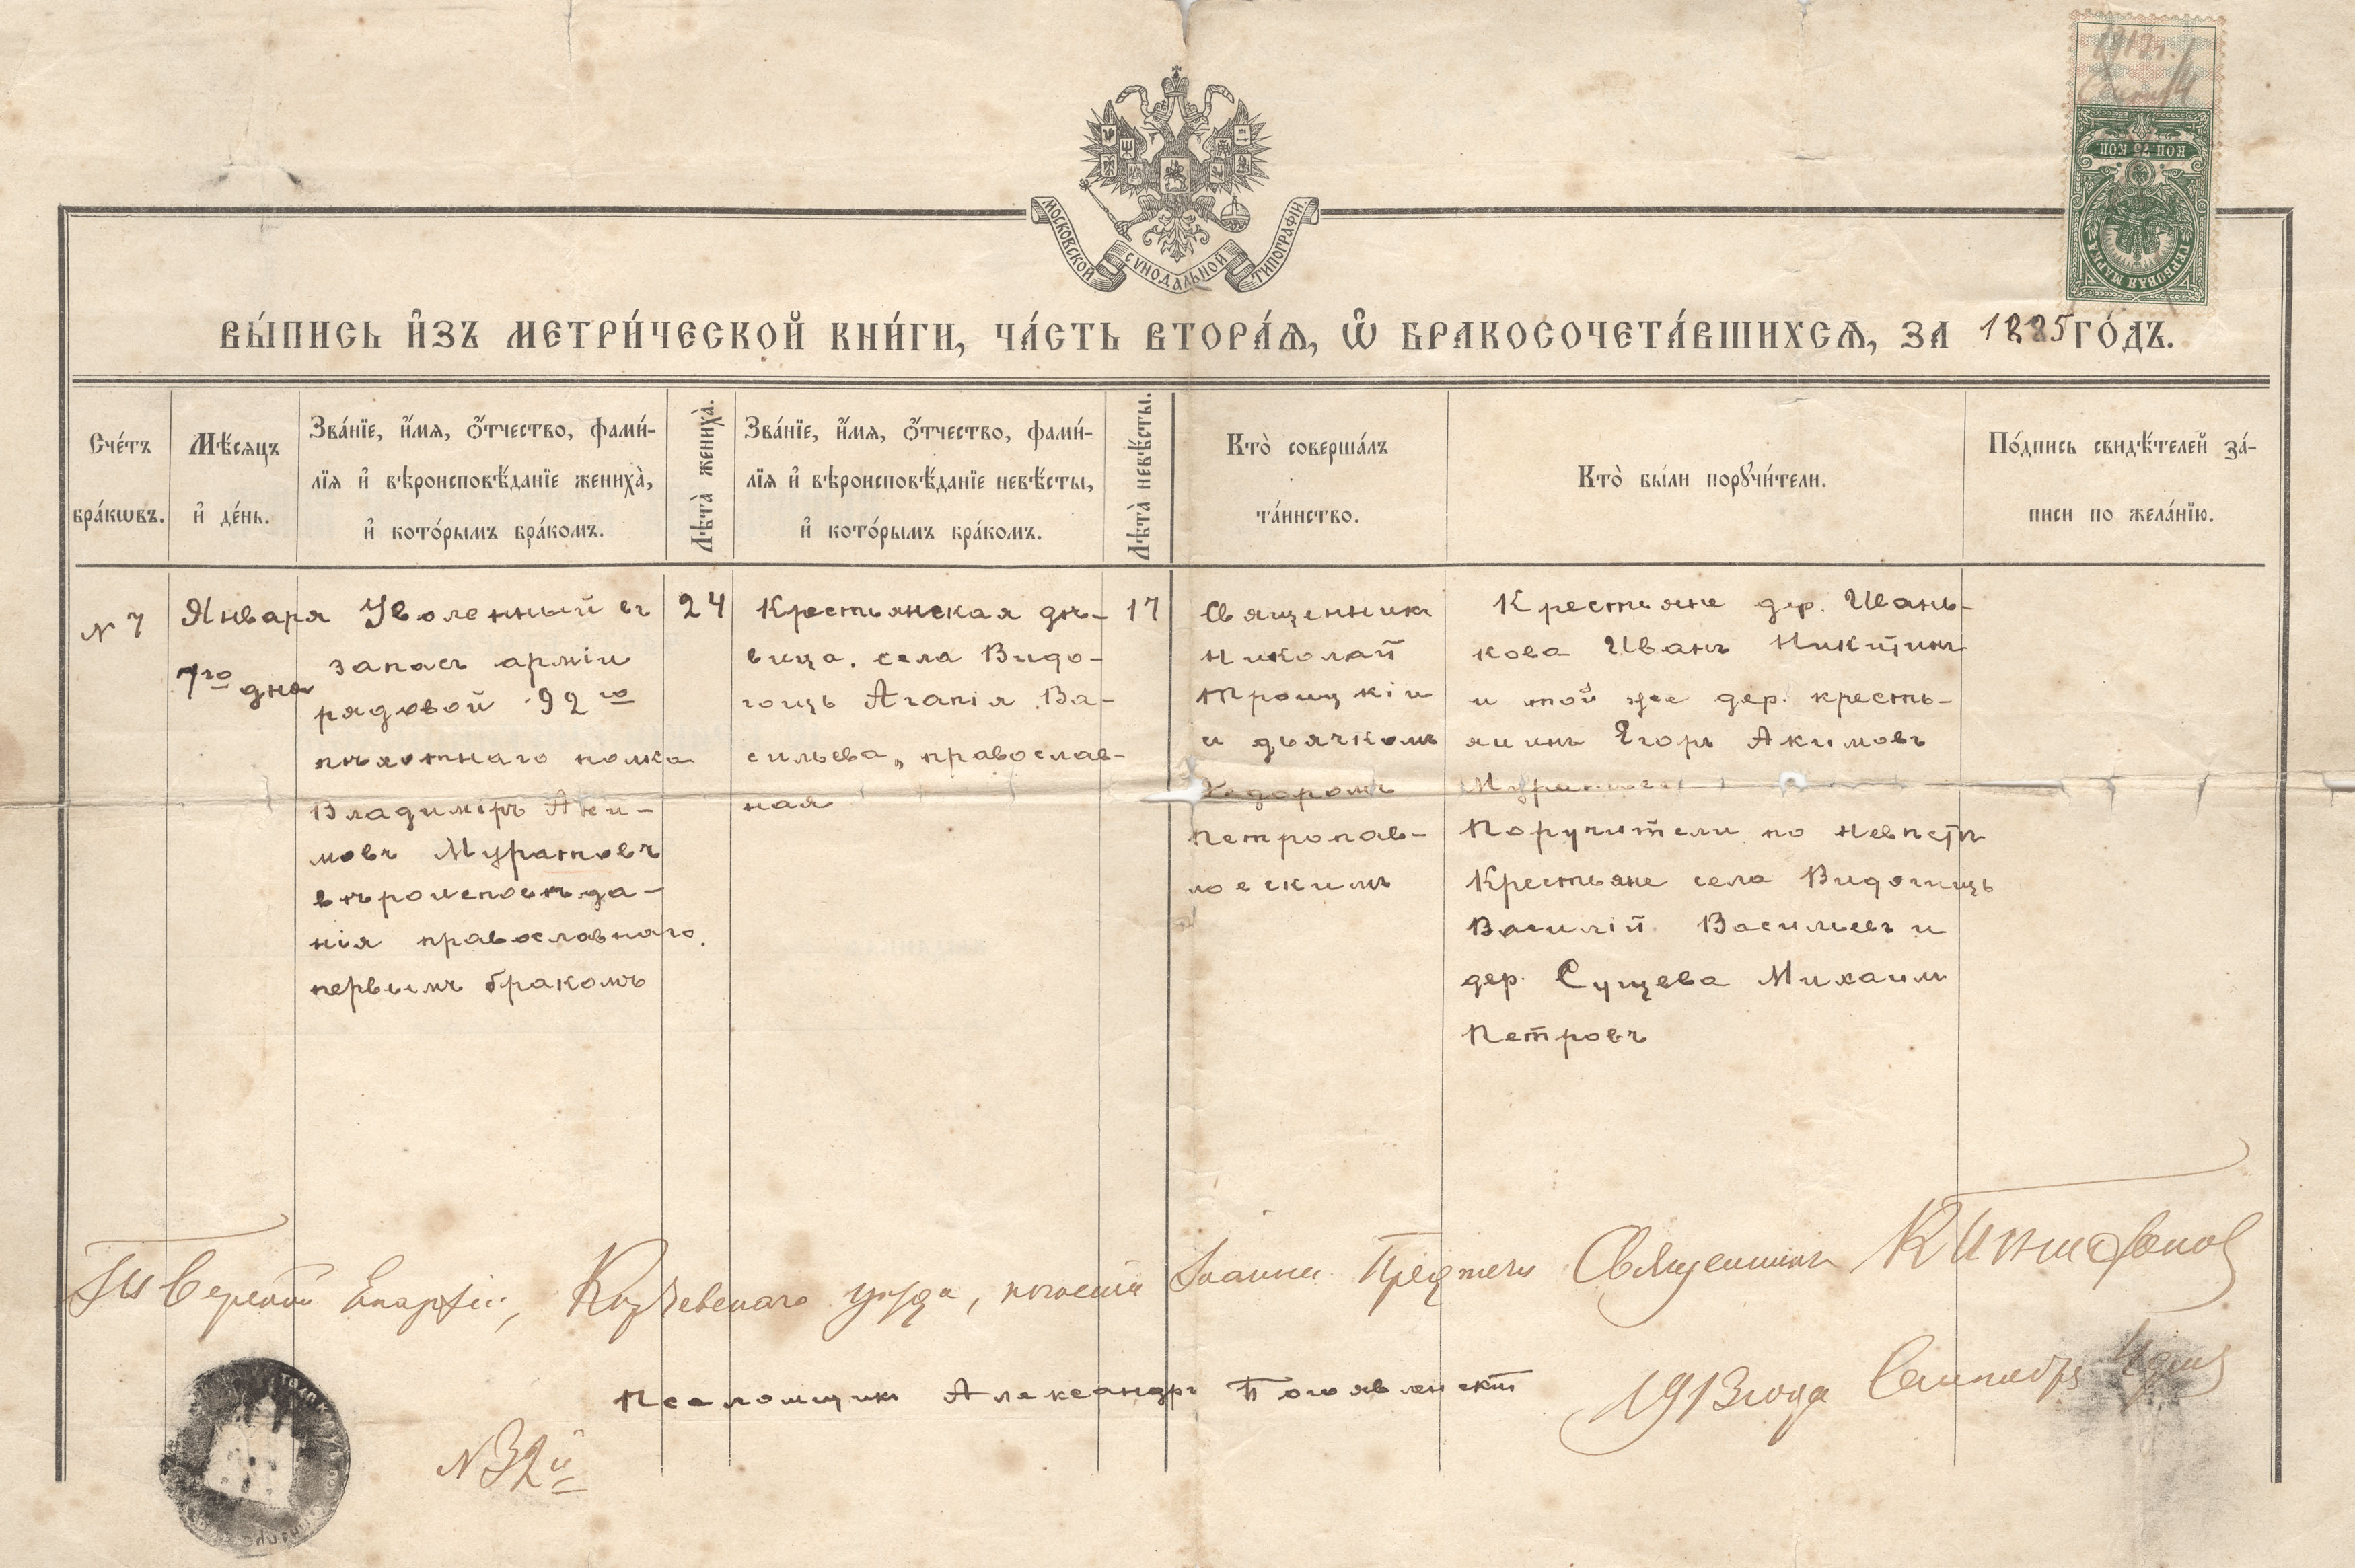 1913 г.
Сент. 4
КОП 75 КОП
ГЕРБОВАЯ МАРКА
МОСКОВСКОЙ СѴНОДАЛЬНОЙ ТИПОГРАФІИ
ВЫ́ПИСЬ И҆ЗЪ МЕТРИ́ЧЕСКОЙ КНИ́ГИ, ЧА́СТЬ ВТОРА́Ѧ, Ѽ БРАКОСОЧЕТА́ВШИХСѦ, ЗА 1885 ГО́ДЪ.
Сче́тъ
бра́кѡвъ.
Мѣ́сяцъ
и҆ де́нь.
Зва́нїе, и҆́мя, ѻ҆́тчество, фами́-
лїя и҆ вѣроисповѣ́данїе жениха̀,
и҆ кото́рымъ бра́комъ.
Лѣта̀ жениха̀.
Зва́нїе, и҆́мя, ѻ҆́тчество, фами́-
лїя и҆ вѣроисповѣ́данїе невѣ́сты,
и҆ кото́рымъ бра́комъ.
Лѣта̀ невѣ́сты.
Кто̀ соверша́лъ
та́инство.
Кто̀ бы́ли порꙋчи́тели.
По́дпись свидѣ́телей за́-
писи по жела́нїю.
№ 7
Января
7го дня
Уволенный въ
запасъ арміи
рядовой 92го
пѣхотнаго полка
Владиміръ Аки-
мовъ Муратовъ
вѣроисповѣда-
нія православнаго,
первымъ бракомъ
24
Крестьянская дѣ-
вица, села Видо-
гощь Агапія Ва-
сильева, православ-
ная
17
Священникъ
Николай
Троицкій
и дьячкомъ
Ѳедоромъ
Петропав-
ловскимъ
Крестьяне дер. Ивань-
кова Иванъ Никитинъ
и той же дер. кресть-
янинъ Егоръ Акимовъ
Муратовъ
Поручители по невѣстѣ
Крестьяне села Видогощь
Василій Васильевъ и
дер. Сущева Михаилъ
Петровъ
Тверской Епархіи, Корчевскаго уѣзда, погоста Іоанна Предтечи Священникъ
Псаломщикъ Александръ Богоявленскій
1913 года Сентября 4 дня
№ 32й